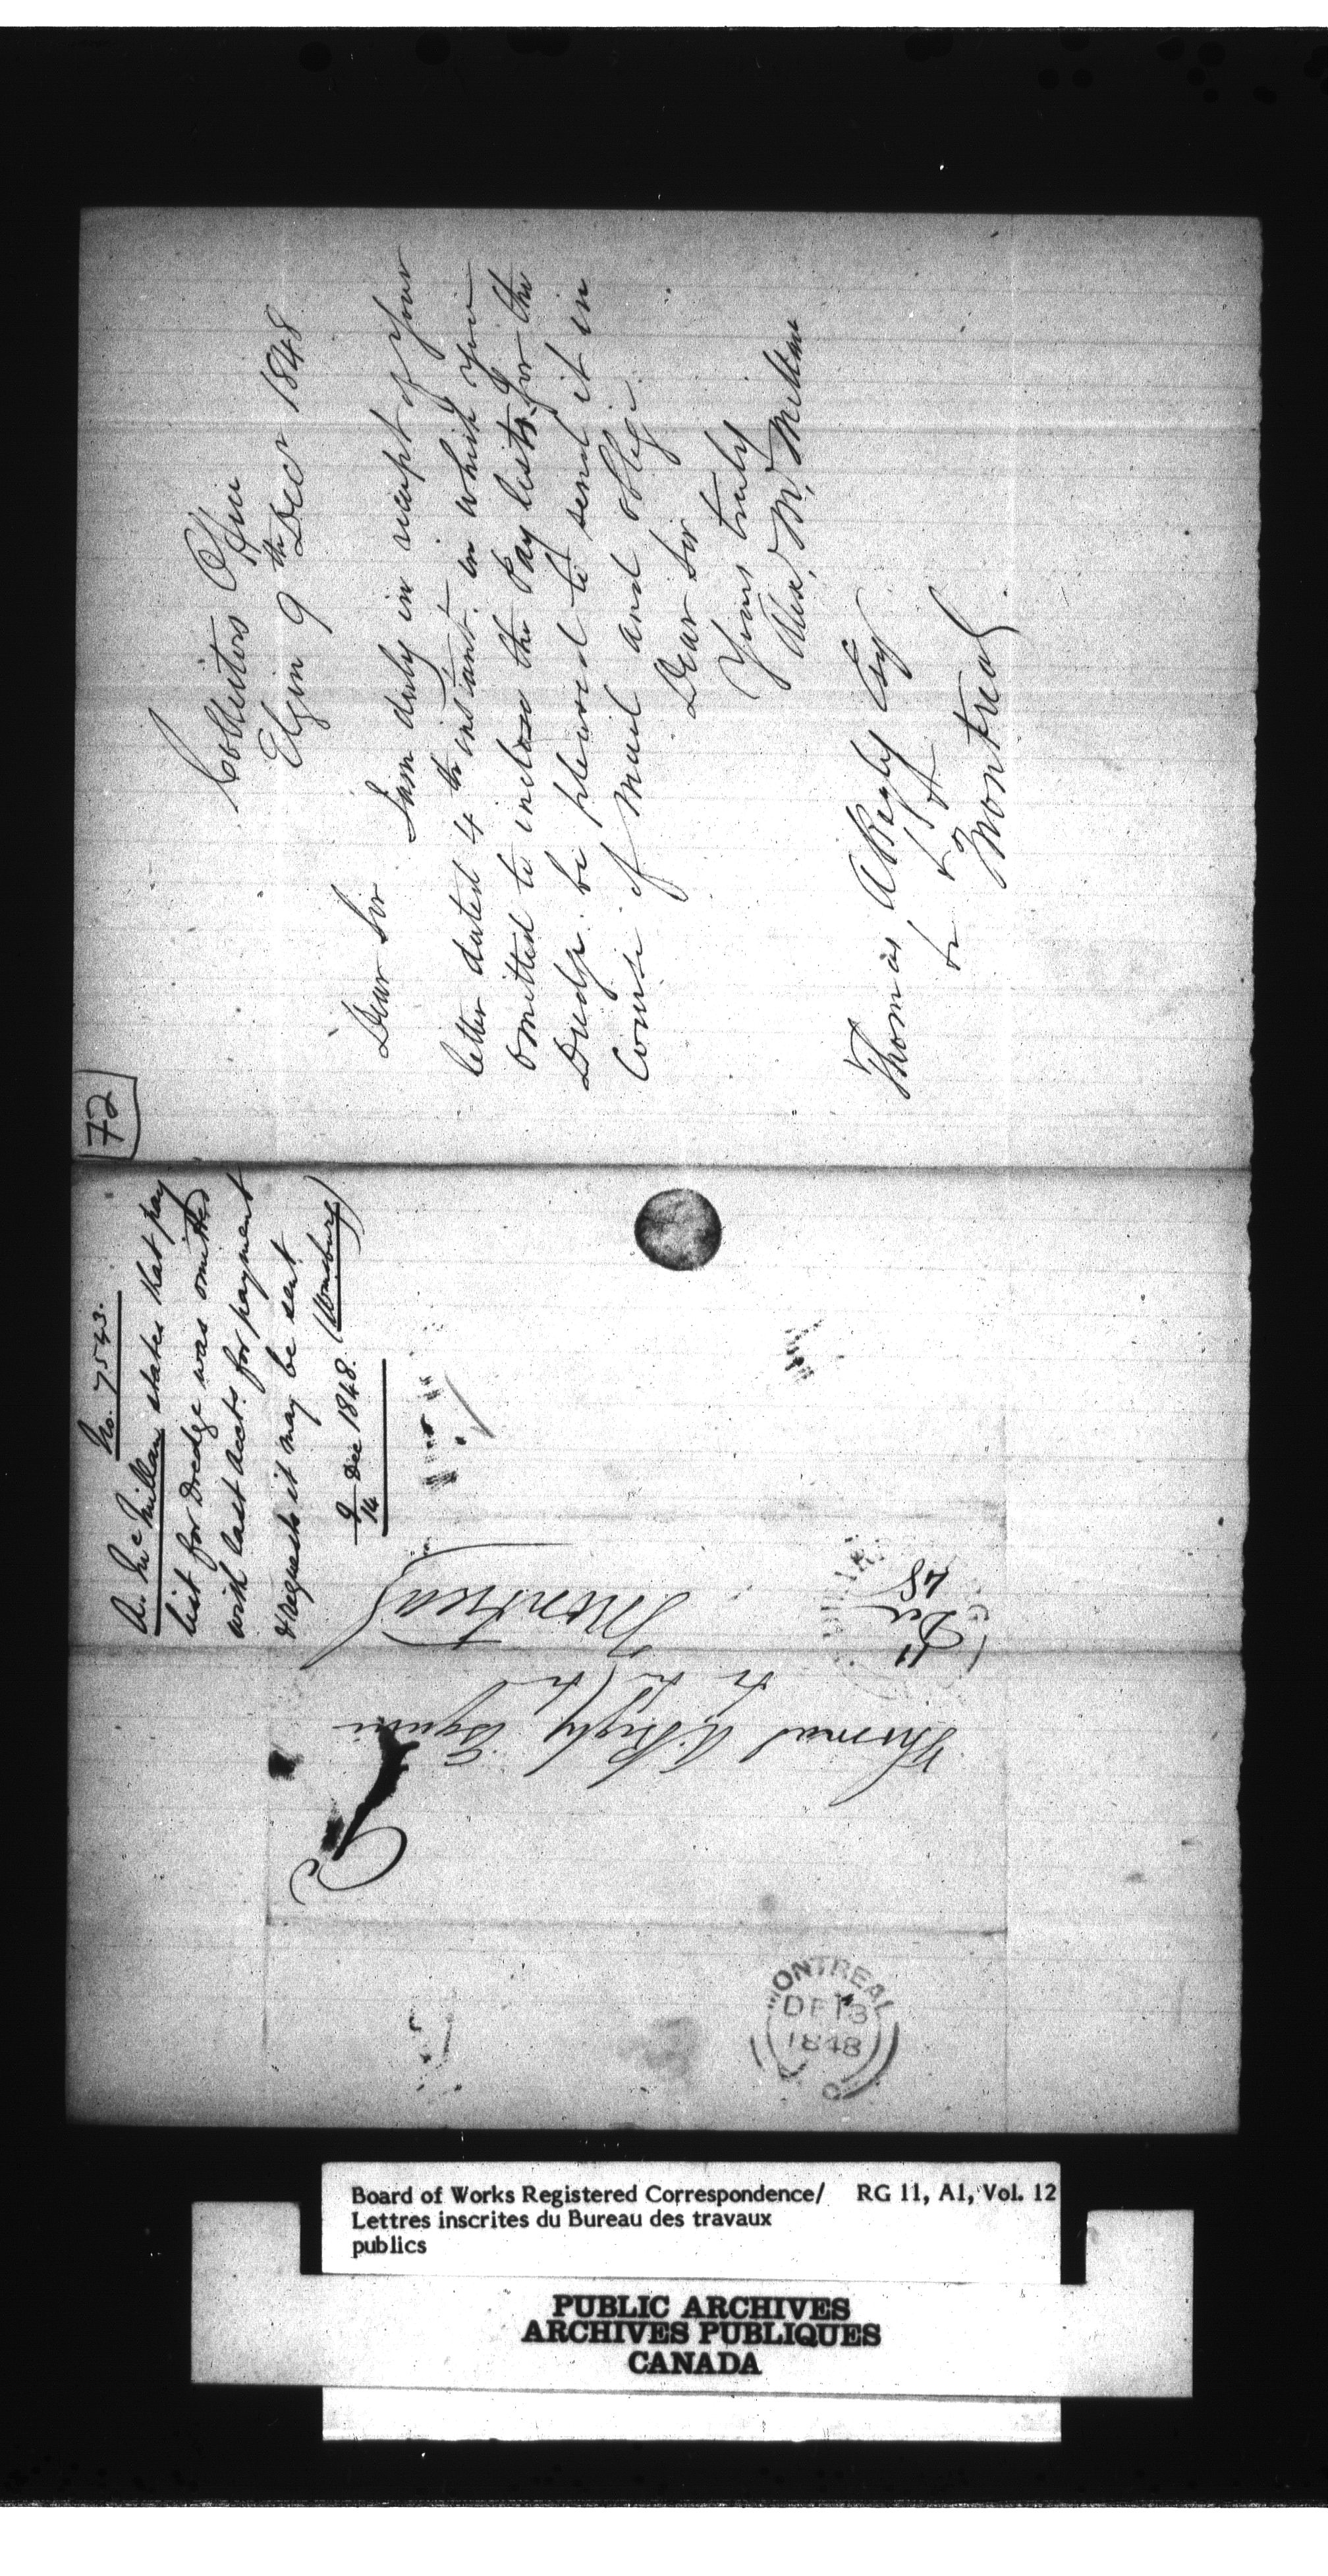 Collectors Office
Elgin 9th Decr 1848
Dear Sir
I am duly in receipt of your
letter dated 4th instant. in which you
omitted to inclose the Pay lists for the
Dredge. be pleased to send it in
Course of Mail and oblige
Dear Sir
Yours truly
Alex. McMillan
Thomas A Begly Esq
&c &c &c
Montreal
72
No. 7543.
A. McMillan states that pay
list for Dredge was omitted
with last accts for payment
& requests it may be sent
9/14 Dec 1848.
Thomas A Begly Esquire
&c &c &c
Montreal
11
Dec
48
MONTREAL
DE 13
1848
Board of Works Registered Correspondence/ RG 11, A1, Vol. 12
Lettres inscrites du Bureau des travaux
publics
PUBLIC ARCHIVES
ARCHIVES PUBLIQUES
CANADA